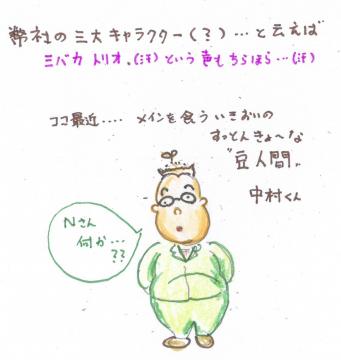 弊社の三大キャラクター(?)…と云えば
ミバカトリオ、(汗)という声もちらほら…(汗)
ココ最近‥‥ メインを食ういきおいの
すっとんきょ〜な
〝豆人間〟
中村くん
Nさん
何か…
??